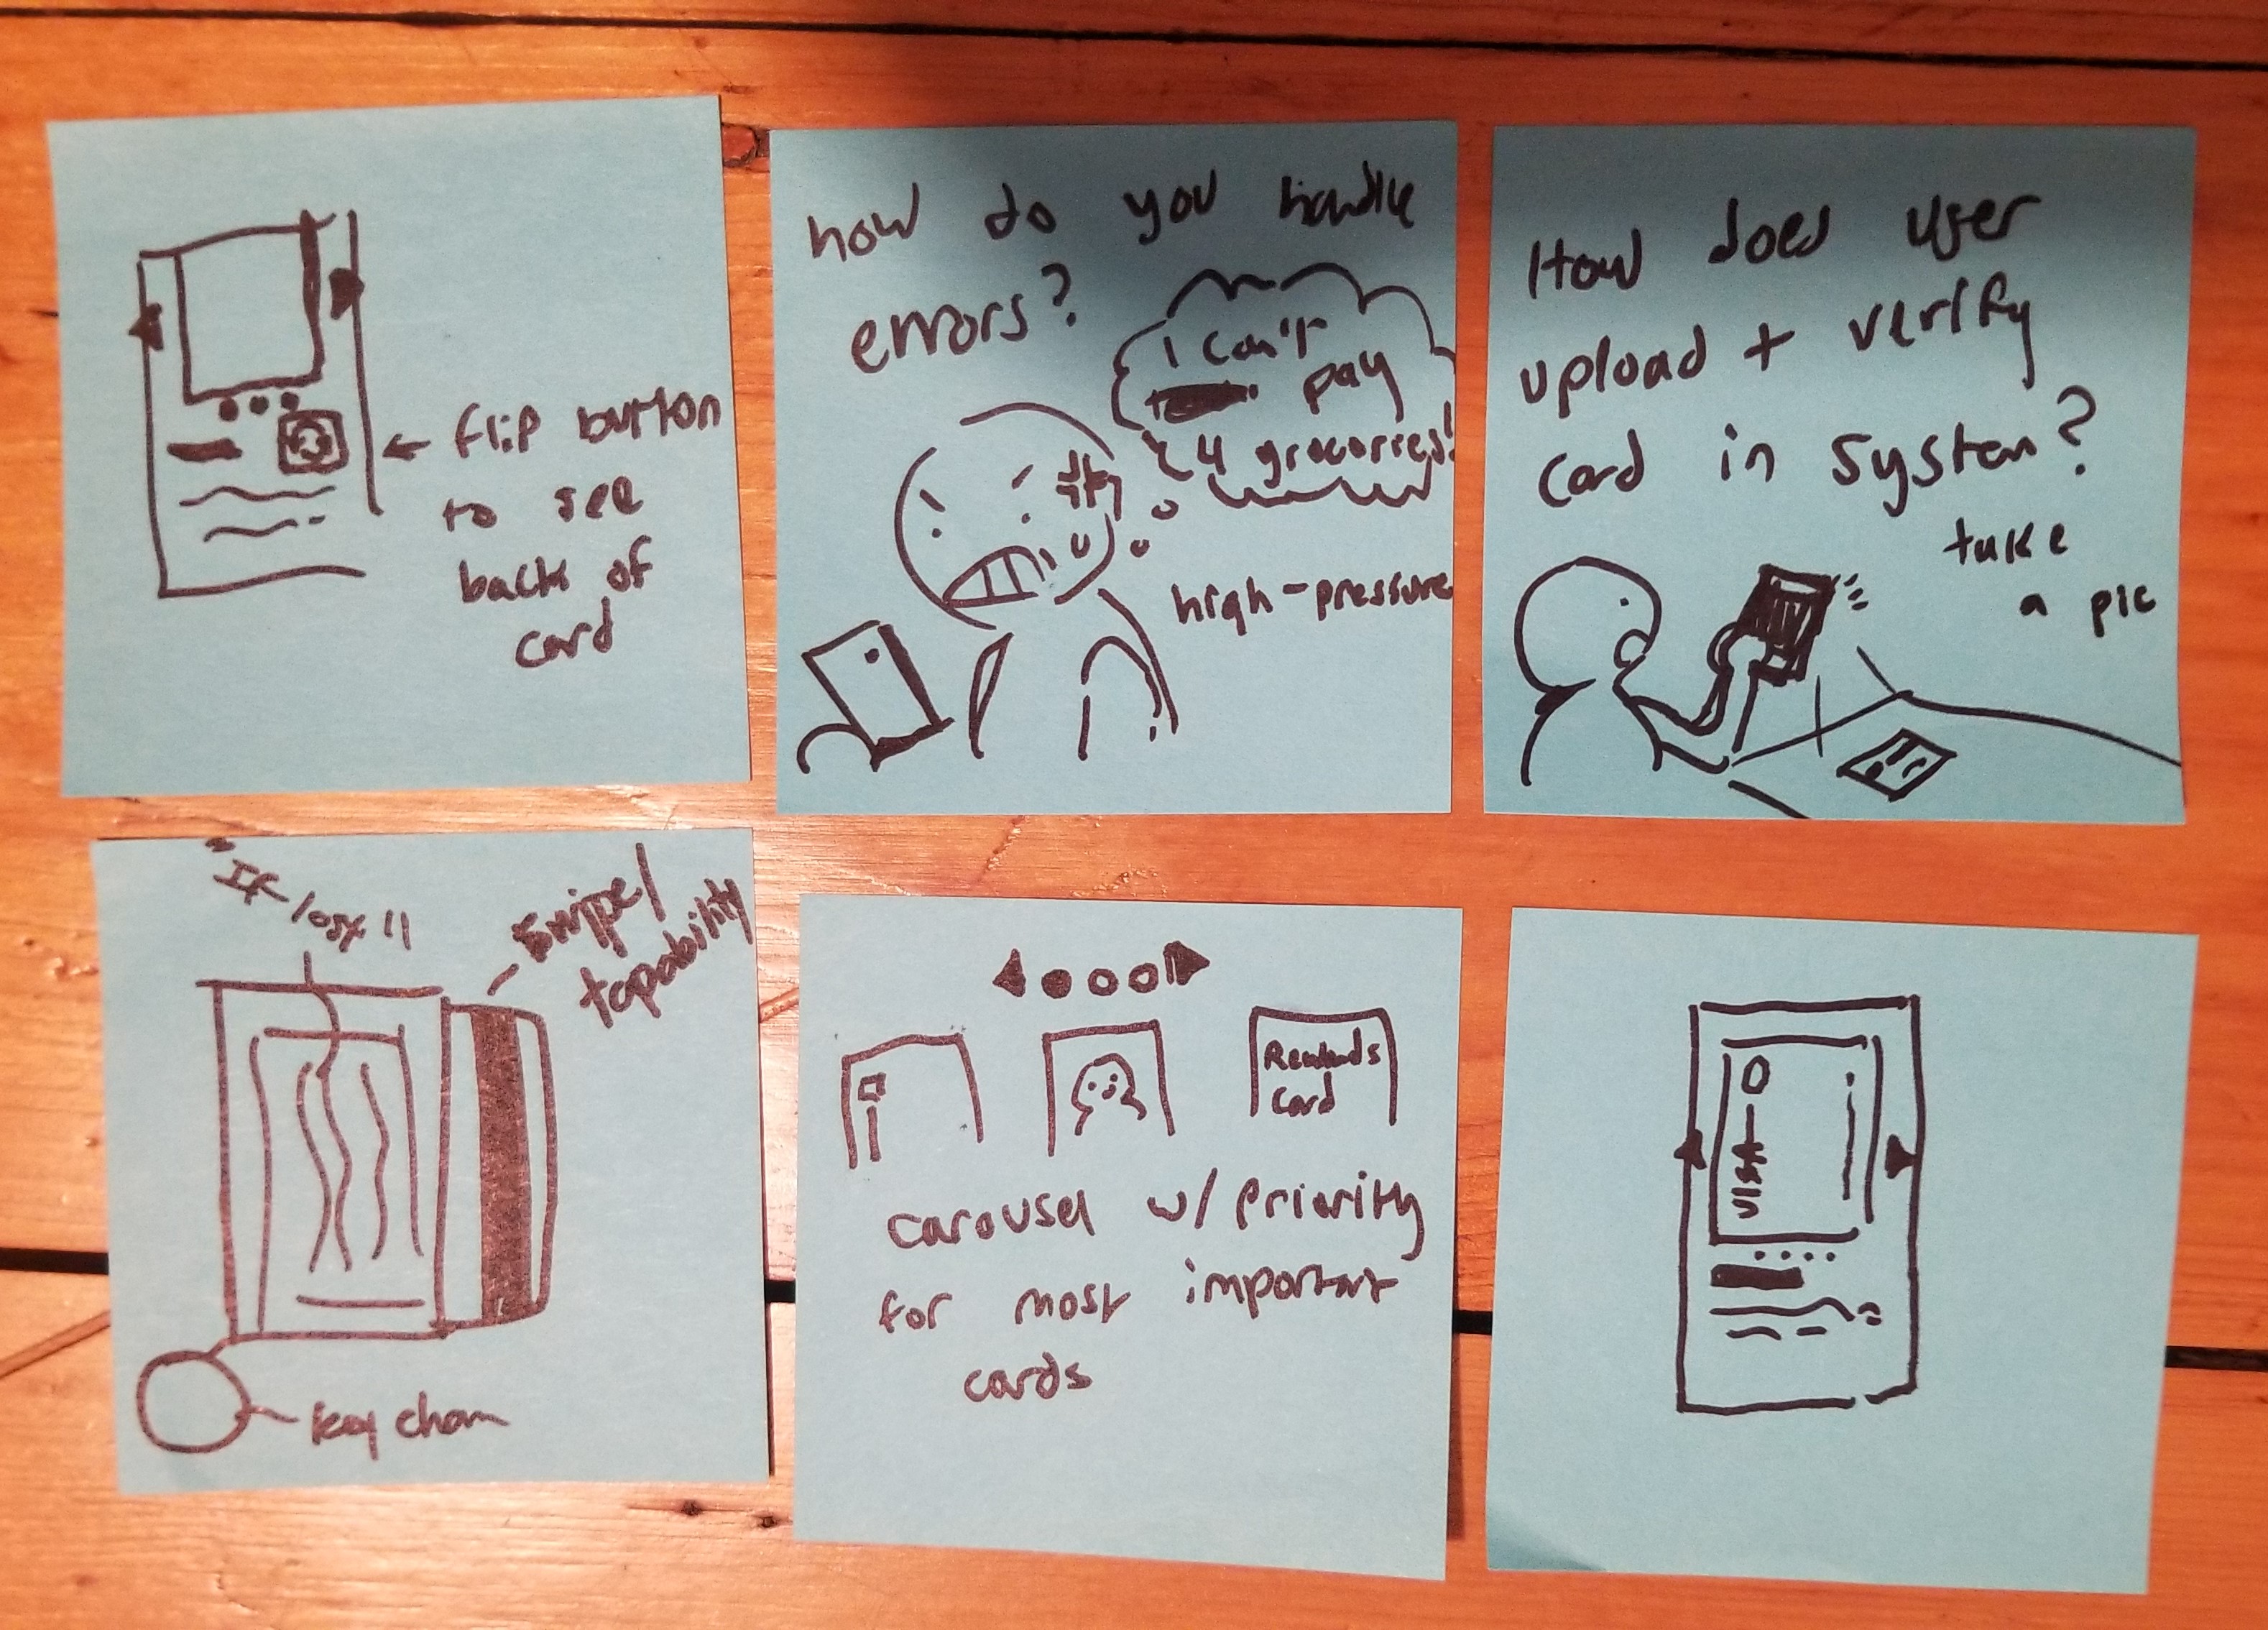 flip button
to see
back of
card
how do you handle
errors?
I can't
pay
4 grocorries!
high-pressure
How does user
upload + verify
card in system?
take
a pic
"If lost"
Swipe/
tapability
key chain
Rewards
Card
carousel w/ priority
for most important
cards
VISA